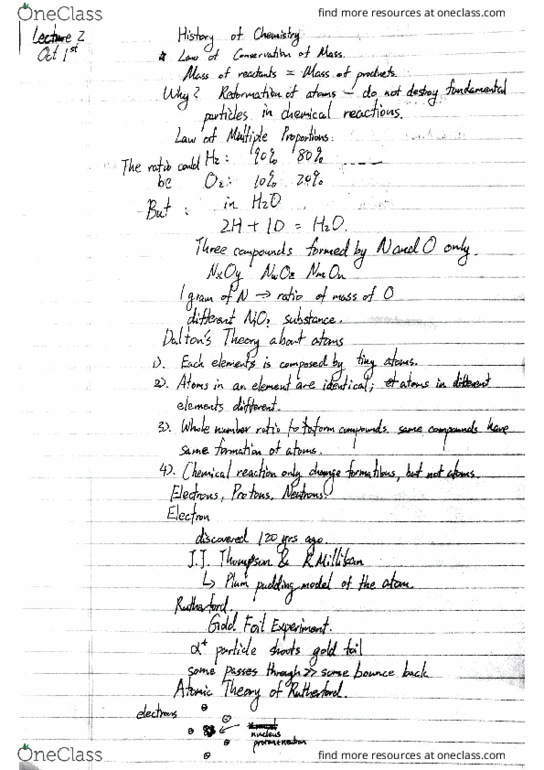 OneClass
find more resources at oneclass.com
Lecture 2
Oct 1st
History of Chemistry
* Law of Conservation of Mass.
Mass of reactants = Mass of products.
Why? Reformation of atoms – do not destroy fundamental
particles in chemical reactions.
Law of Multiple Proportions:
The ratio could be
H2: 90% 80% ----
O2: 10% 20%
But : in H2O
2H + 1O = H2O.
Three compounds formed by N and O only.
NxOy NwOz NmOn
1 gram of N → ratio of mass of O
different substance.
Dalton's Theory about atoms
1). Each elements is composed by tiny atoms.
2). Atoms in an element are identical; atoms in different
elements different.
3). Whole number ratio to form compounds. same compounds have
same formation of atoms.
4). Chemical reaction only change formations, but not atoms.
Electrons, Protons, Neutrons.
Electron
discovered 120 yrs ago.
J.J. Thompson & R. Millikan
↳ Plum pudding model of the atom.
Rutherford.
Gold Foil Experiment.
α+ particle shoots gold foil
some passes through >> some bounce back
Atomic Theory of Rutherford.
electrons
nucleus
OneClass
find more resources at oneclass.com